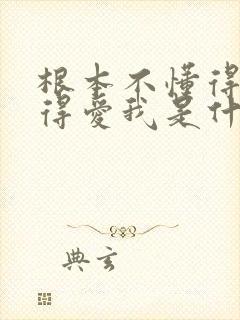 根本不懂得
得爱我是什
典玄